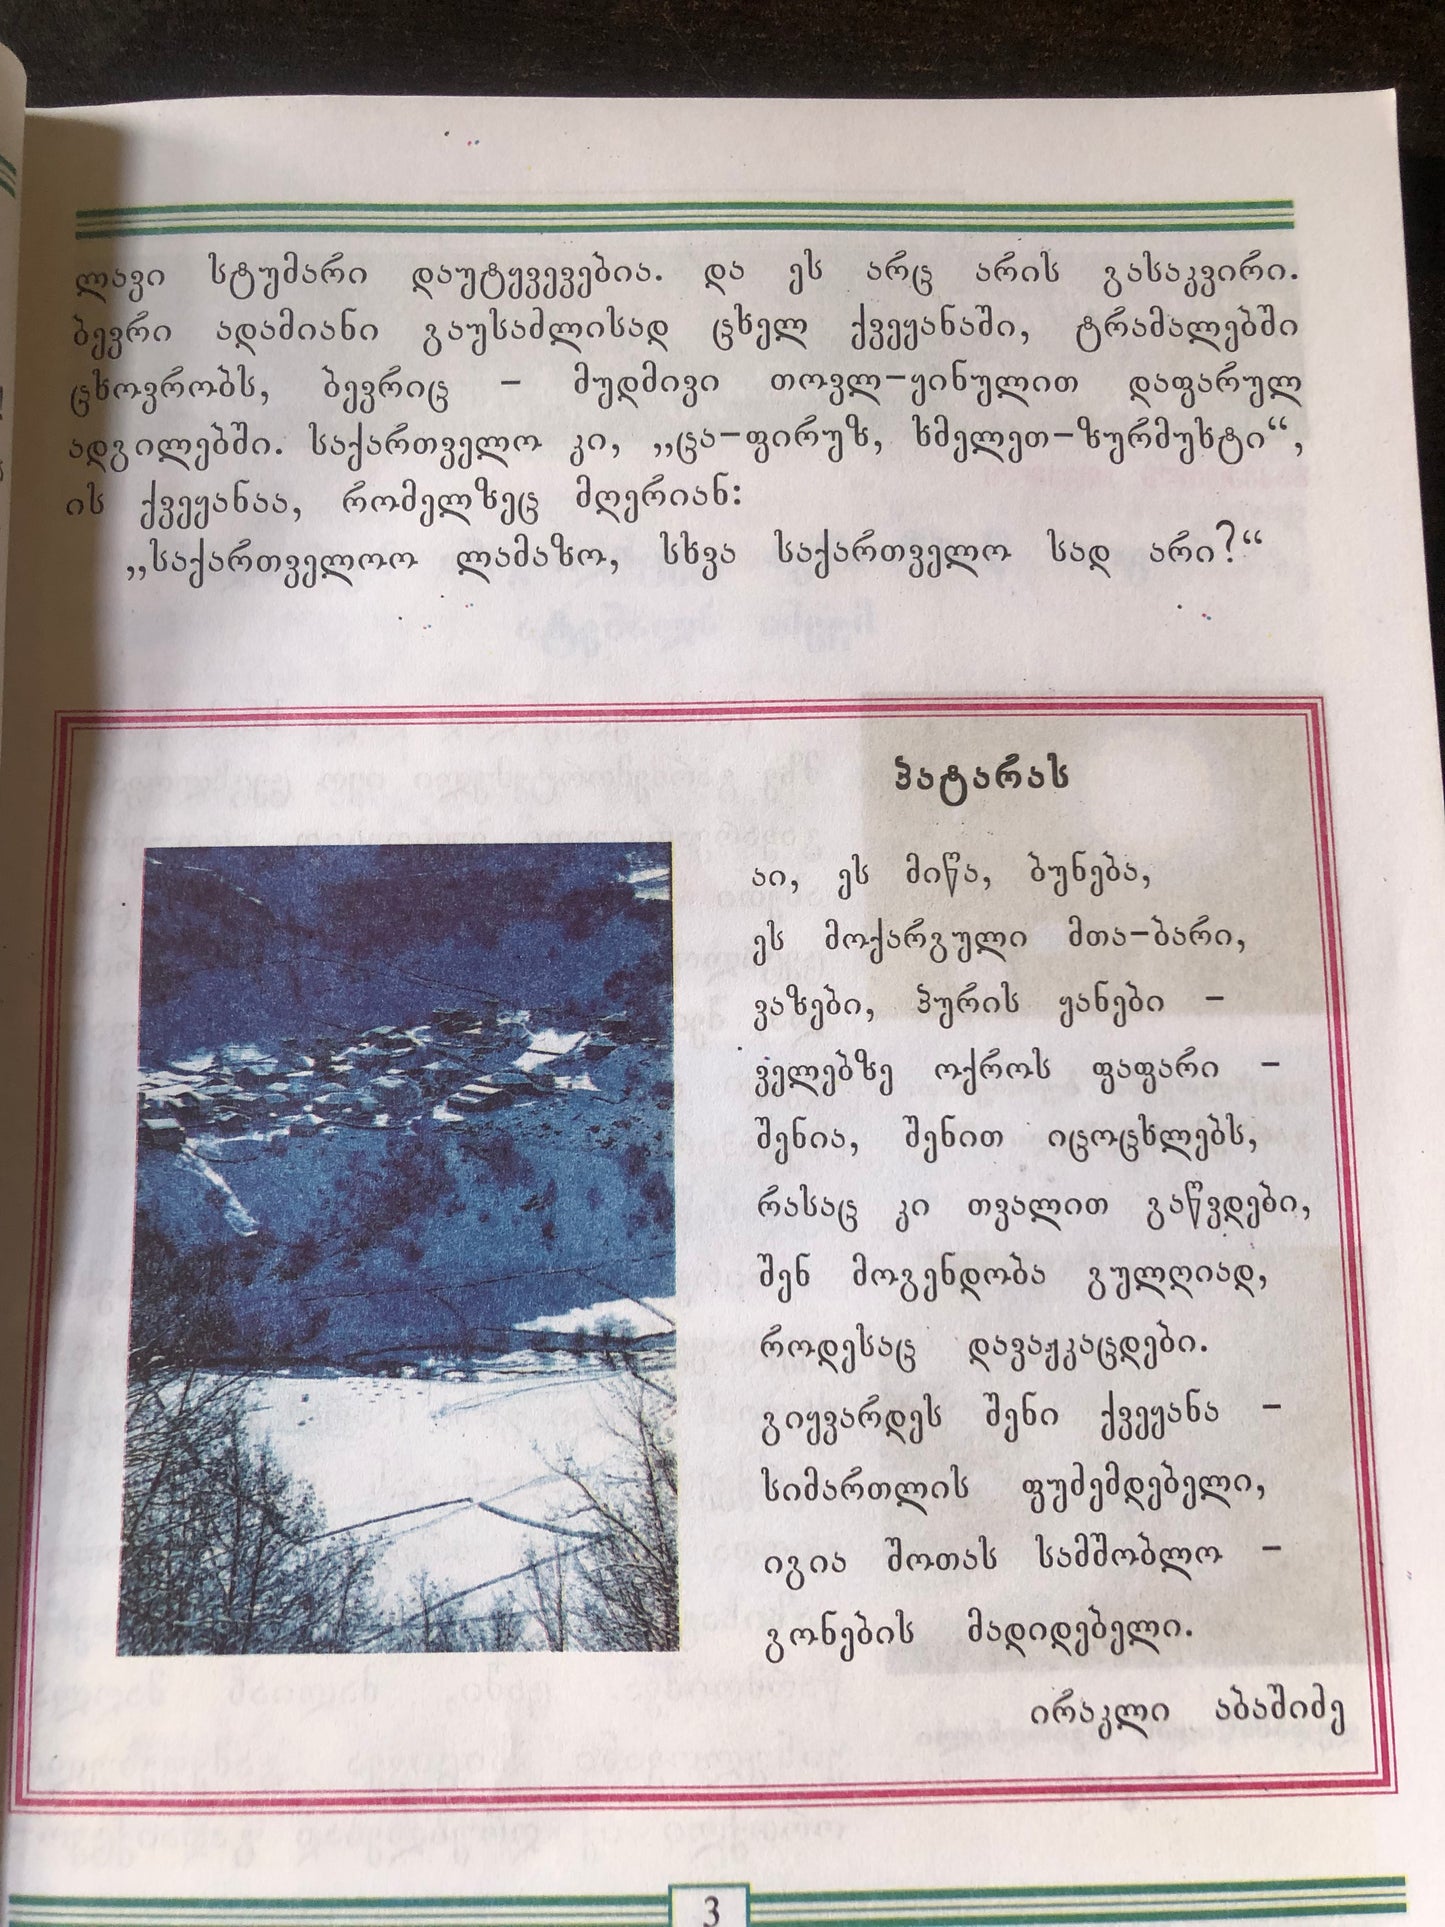 ლავი სტუმარი დაუტყვევებია. და ეს არც არის გასაკვირი.
ბევრი ადამიანი გაუსაძლისად ცხელ ქვეყანაში, ტრამალებში
ცხოვრობს, ბევრიც – მუდმივი თოვლ-ყინულით დაფარულ
ადგილებში. საქართველო კი, „ცა-ფირუზ, ხმელეთ-ზურმუხტი“,
ის ქვეყანაა, რომელზეც მღერიან:
„საქართველოო ლამაზო, სხვა საქართველო სად არი?“
პატარას
აი, ეს მიწა, ბუნება,
ეს მოქარგული მთა-ბარი,
ვაზები, პურის ყანები –
ველებზე ოქროს ფაფარი –
შენია, შენით იცოცხლებს,
რასაც კი თვალით გაწვდები,
შენ მოგენდობა გულღიად,
როდესაც დავაჟკაცდები.
გიყვარდეს შენი ქვეყანა –
სიმართლის ფუძემდებელი,
იგია შოთას სამშობლო –
გონების მადიდებელი.
ირაკლი აბაშიძე
3